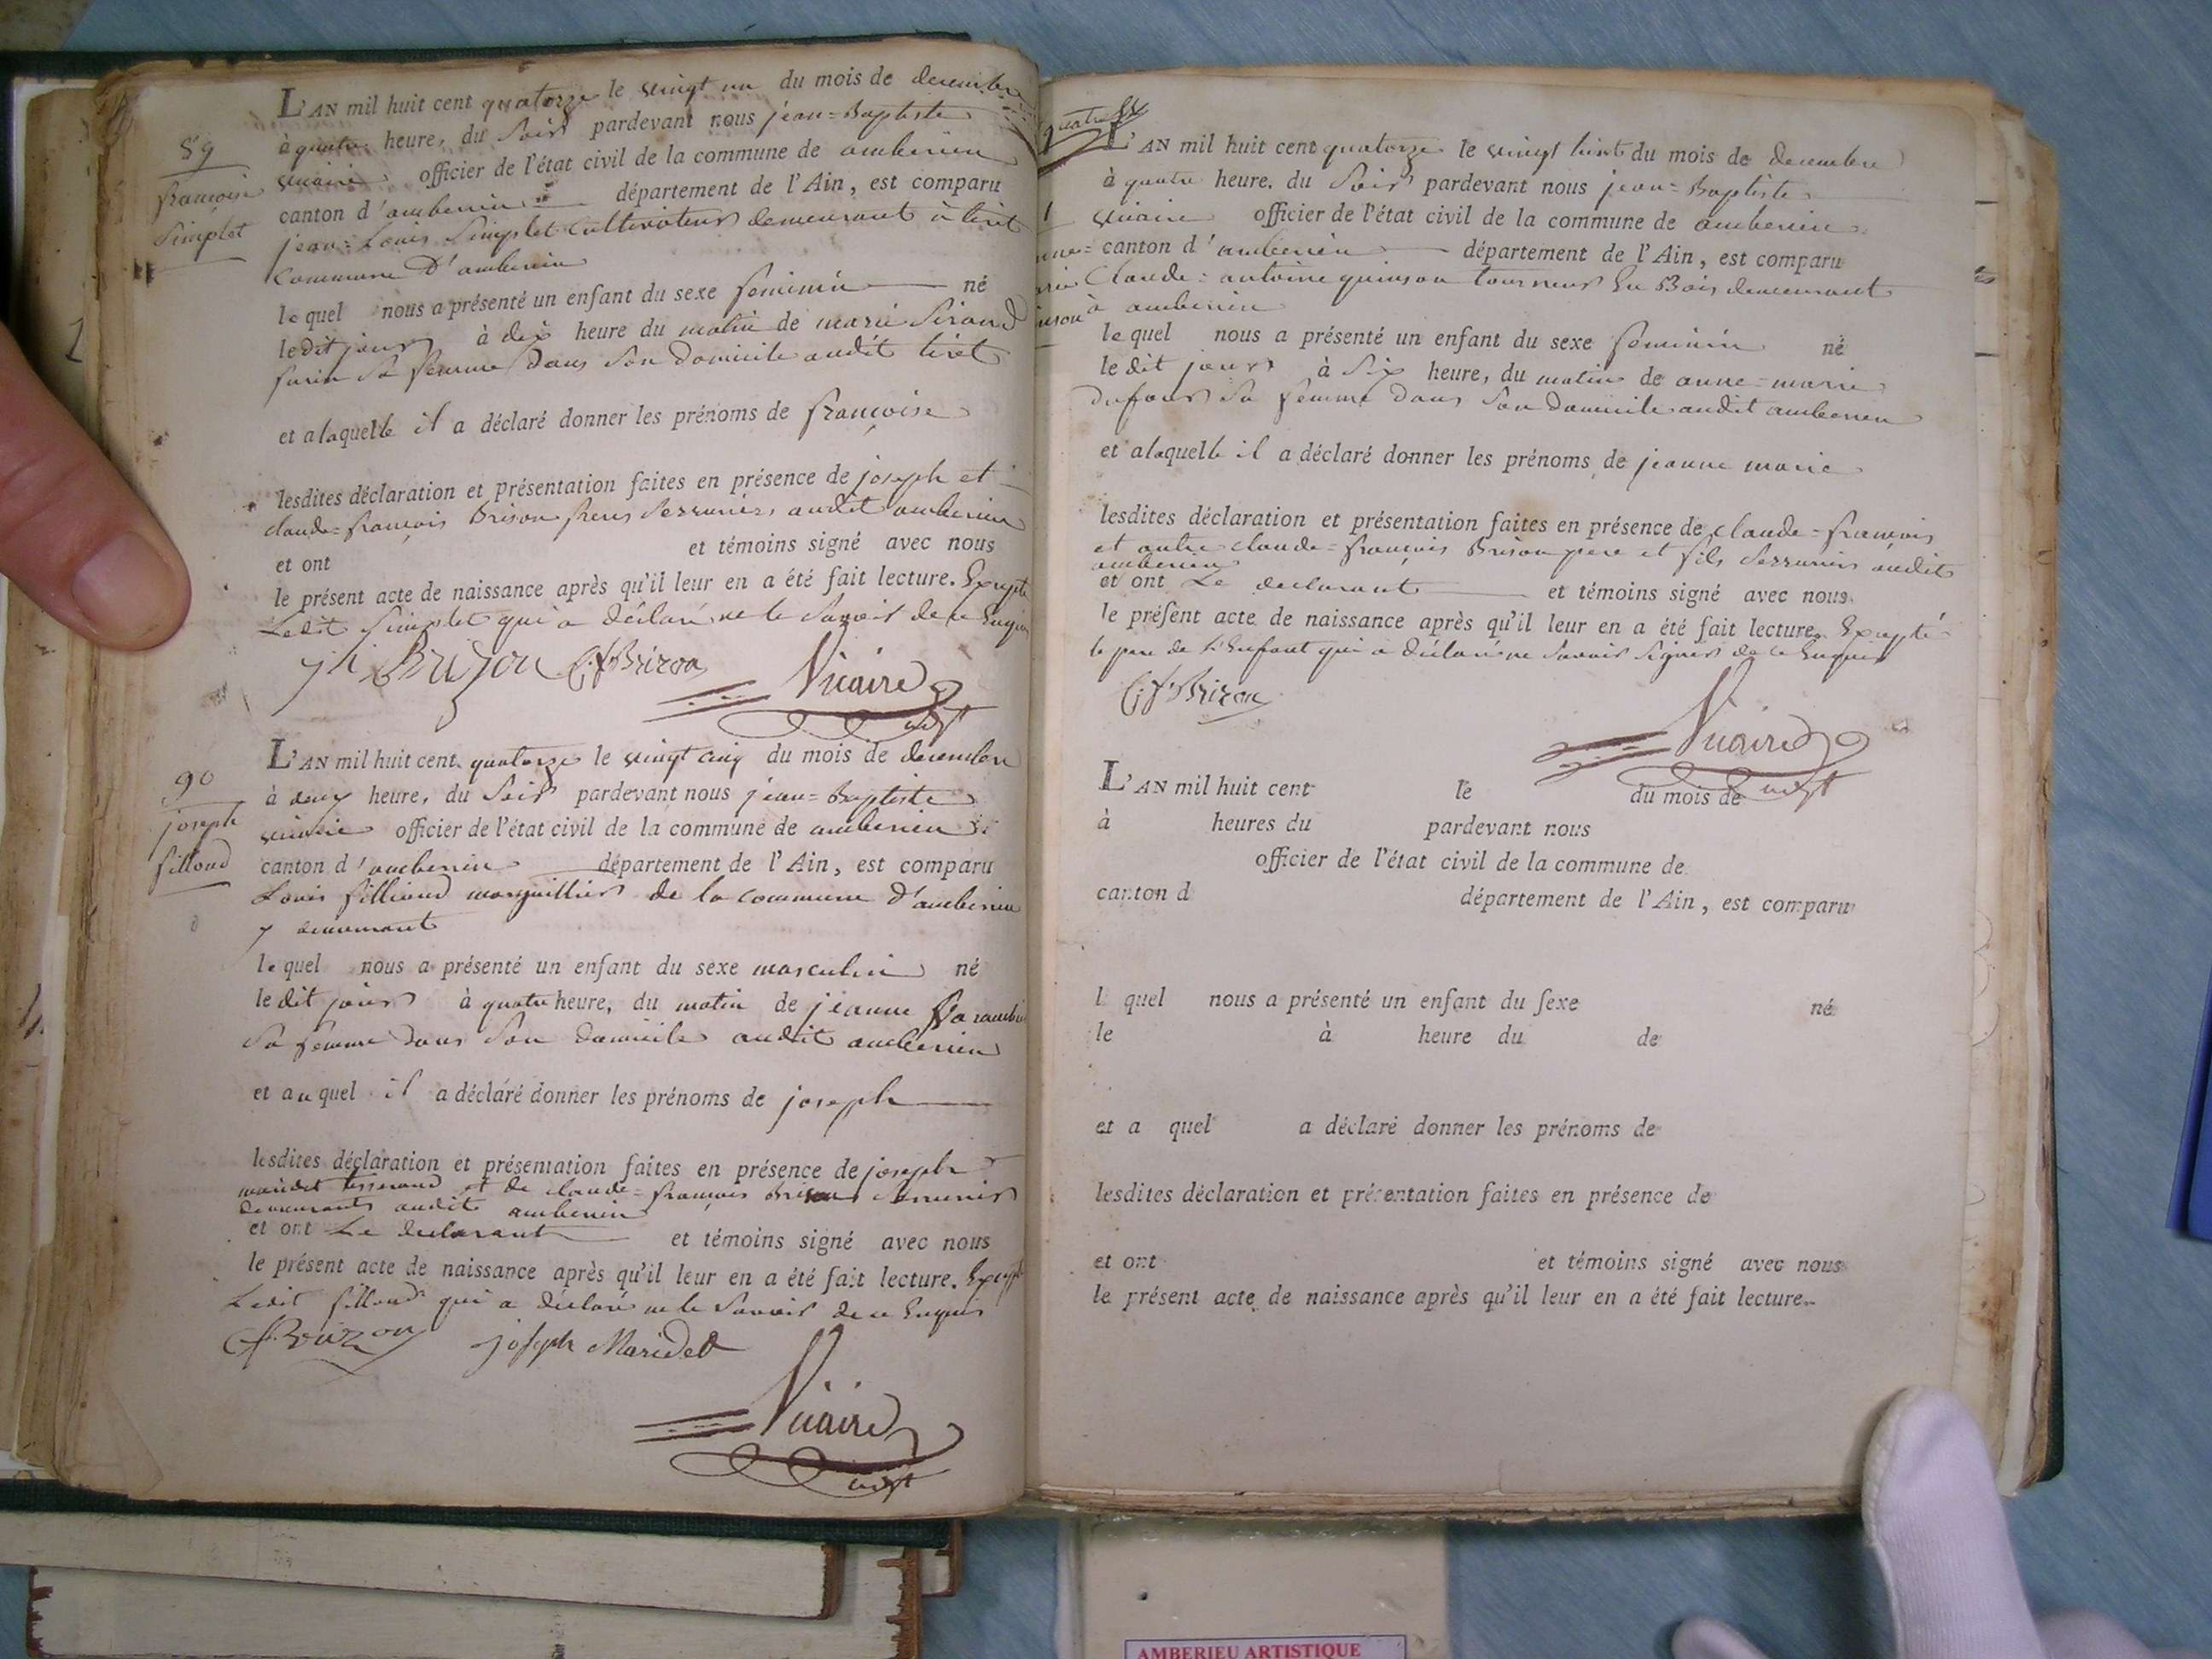 89
françoise
Simplet
L'AN mil huit cent quatorze le vingt un du mois de decembre
à quatre heure, du Soir pardevant nous jean=Baptiste
vicaire officier de l'état civil de la commune de amberieu
canton d'amberieu département de l'Ain, est comparu
jean=Louis Simplet Cultivateur demeurant à tiret
Commune D'amberieu
le quel nous a présenté un enfant du sexe feminin né
le dit jour à dix heure du matin de marie Sirand
sa femme dans Son Domicile audit tiret
et a laquelle il a déclaré donner les prénoms de françoise
lesdites déclaration et présentation faites en présence de joseph et
claude=françois Brison freres Serruriers audit amberieu
et ont et témoins signé avec nous
le présent acte de naissance après qu'il leur en a été fait lecture. Excepté
Ledit Simplet qui a déclaré ne le Savoir de ce Enquis
jh Brizon C. f Brizon
Vicaire
adjt
90
joseph
filloud
L'AN mil huit cent quatorze le vingt cinq du mois de decembre
à deux heure, du Soir pardevant nous jean=Baptiste
vicaire officier de l'état civil de la commune de amberieu
canton d'amberieu département de l'Ain, est comparu
Louis fillioud marguillier de la commune d'amberieu
y demeurant
le quel nous a présenté un enfant du sexe masculin né
le dit jour à quatre heure, du matin de jeanne
Sa femme dans Son domicile audit amberieu
et au quel il a déclaré donner les prénoms de joseph
lesdites déclaration et présentation faites en présence de joseph
maridet tisserand et de claude=françois Brison Serrurier
demeurants audit amberieu
et ont Le declarant et témoins signé avec nous
le présent acte de naissance après qu'il leur en a été fait lecture. Excepté
Ledit filloud qui a déclaré ne le Savoir de ce Enquis
C f Brizon joseph Maridet
Vicaire
adjt
L'AN mil huit cent quatorze le vingt huit du mois de decembre
à quatre heure, du Soir pardevant nous jean=Baptiste
vicaire officier de l'état civil de la commune de amberieu
canton d'amberieu département de l'Ain, est comparu
Claude=antoine quinson tourneur En Bois demeurant
à amberieu
le quel nous a présenté un enfant du sexe feminin né
le dit jour à Six heure, du matin de anne=marie
Dufour Sa femme dans Son Domicile audit amberieu
et a laquelle il a déclaré donner les prénoms de jeanne marie
lesdites déclaration et présentation faites en présence de claude=françois
et autre claude=françois Brison pere et fils Serruriers audit
amberieu
et ont Le declarant et témoins signé avec nous
le présent acte de naissance après qu'il leur en a été fait lecture. Excepté
le pere de l'Enfant qui a déclaré ne Savoir Signer de ce Enquis
C. f Brizon
Vicaire
adjt
L'AN mil huit cent le du mois de
à heures du pardevant nous
officier de l'état civil de la commune de
canton d département de l'Ain, est comparu
l quel nous a présenté un enfant du sexe né
le à heure du de
et a quel a déclaré donner les prénoms de
lesdites déclaration et présentation faites en présence de
et ont et témoins signé avec nous
le présent acte de naissance après qu'il leur en a été fait lecture.
AMBERIEU ARTISTIQUE